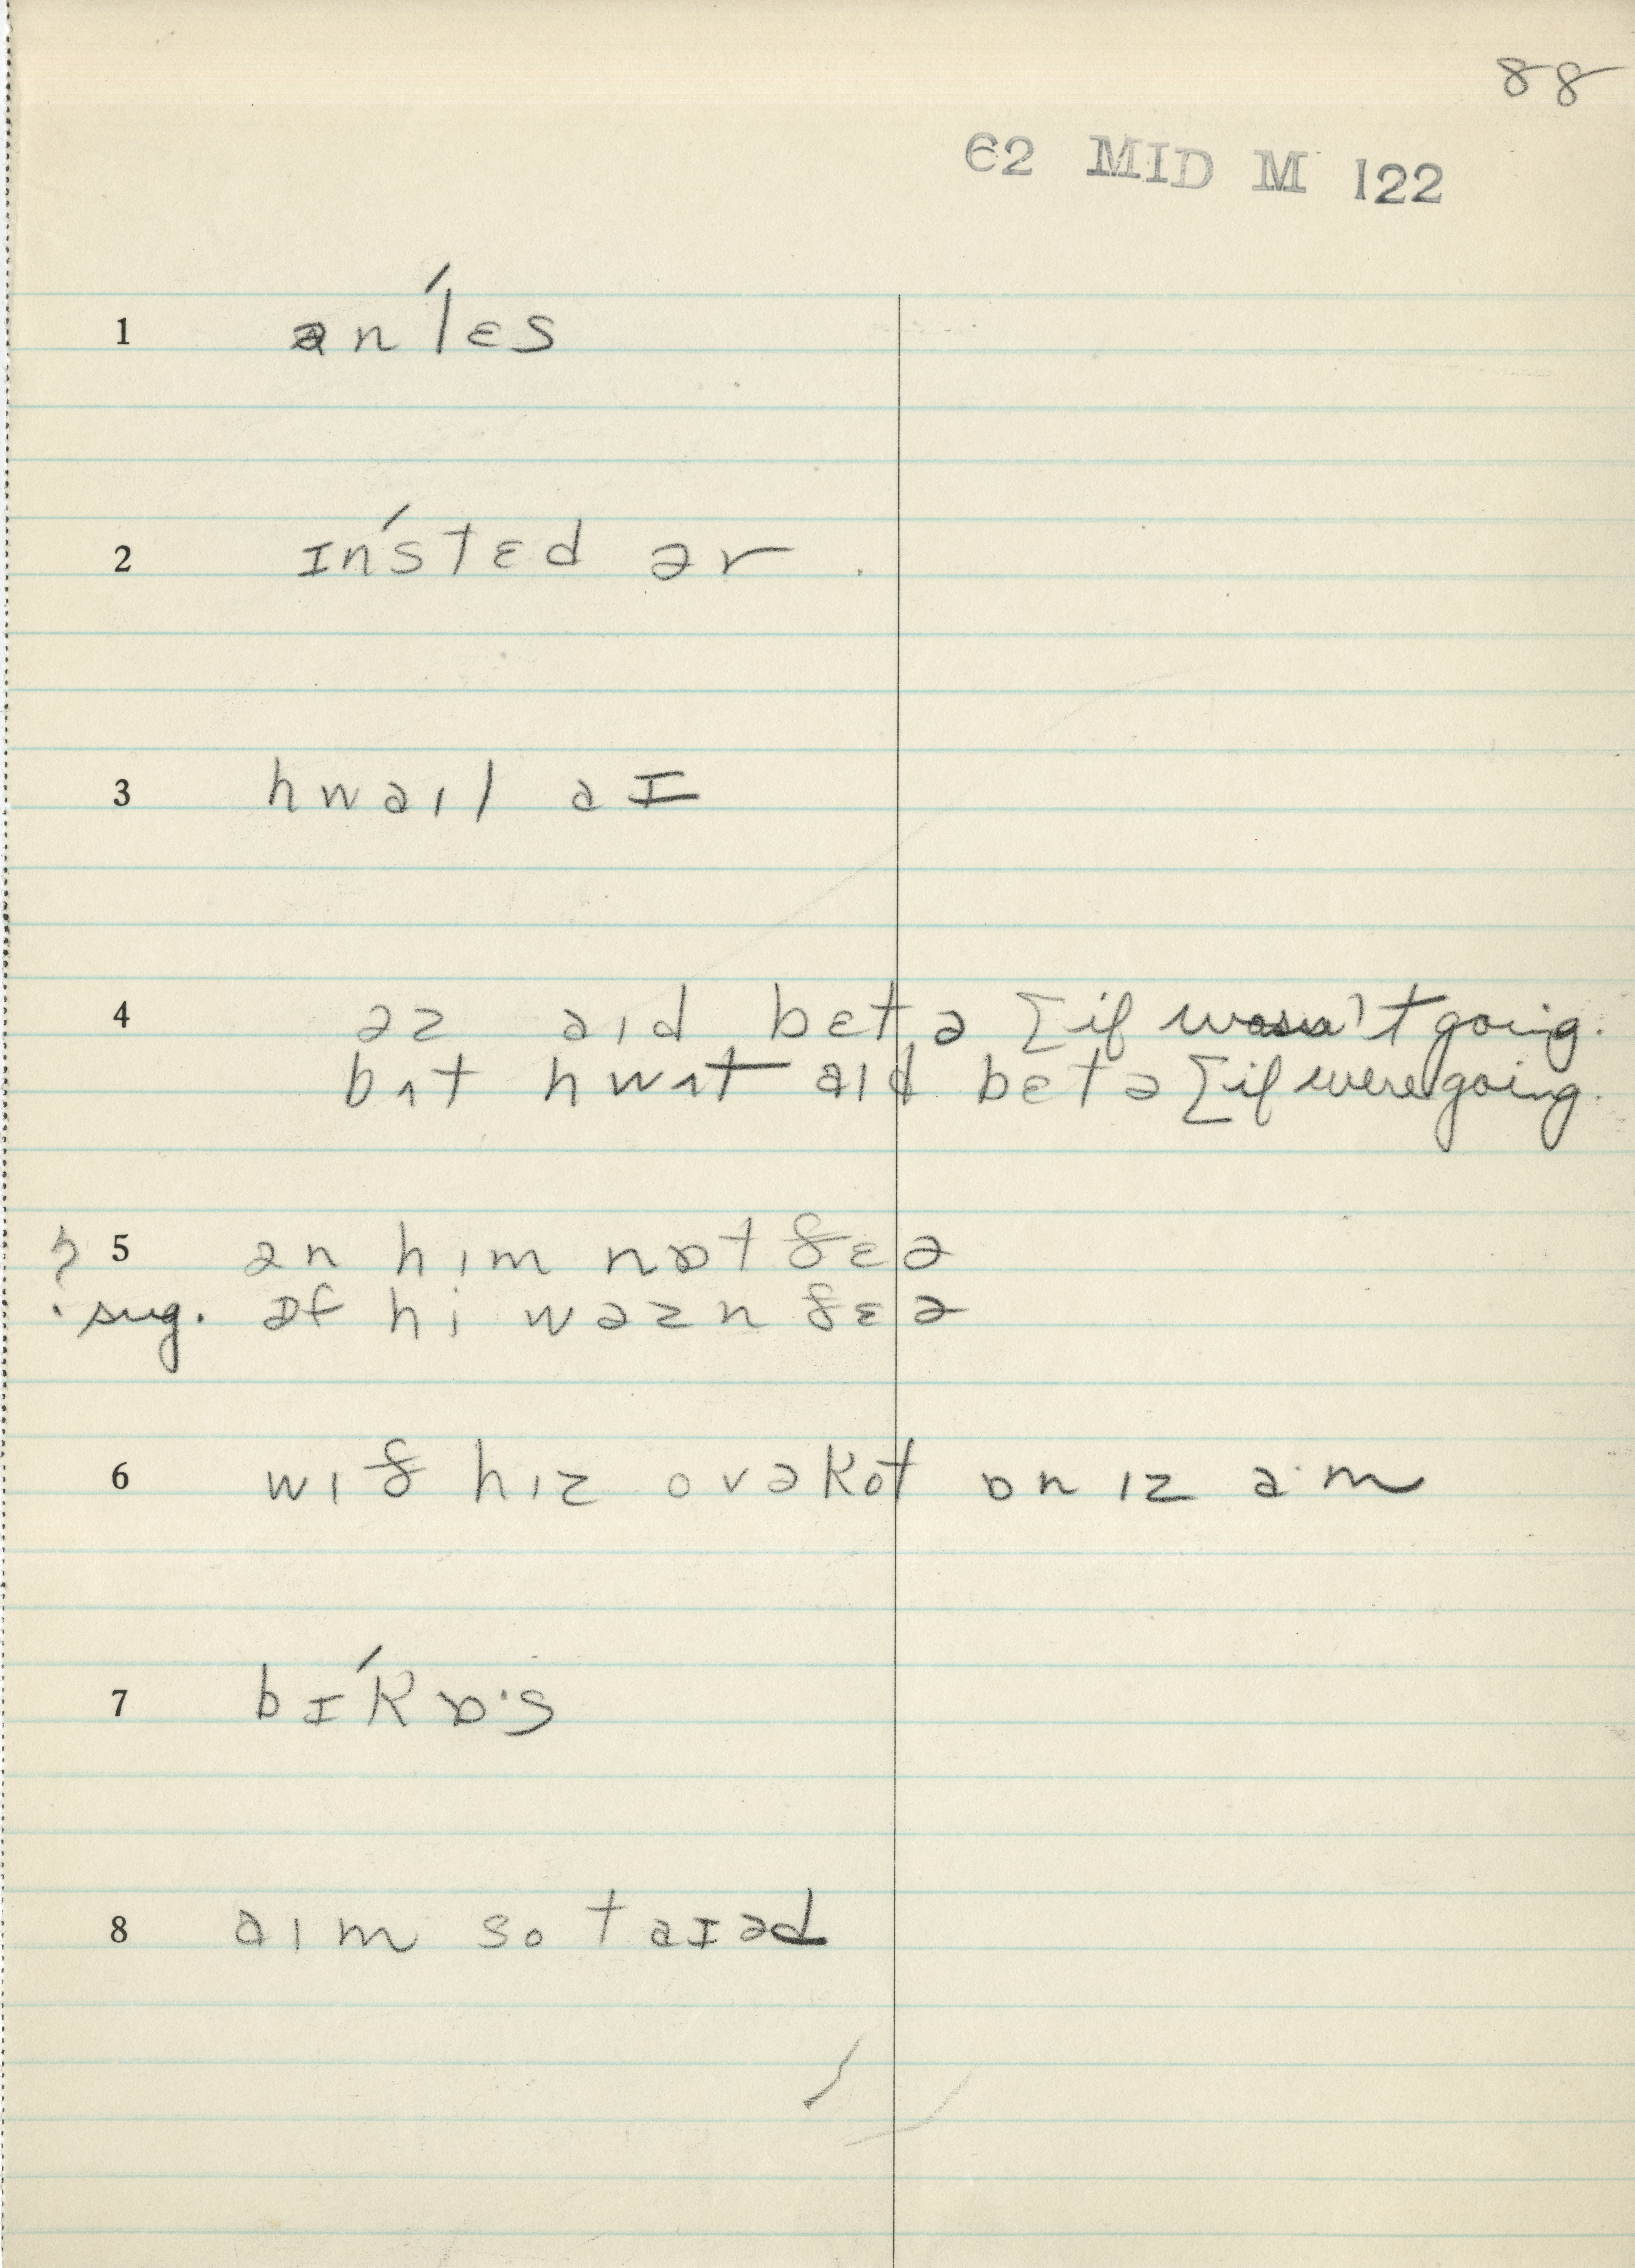 88
62 MID M 122
1 ən'lɛs
2 ɪn'stɛd ər
3 hwaɪl aɪ
4 əz aɪd bɛtə [if wasn't going.
bʌt hwʌt aɪd bɛtə [if were going.
? 5 ən hɪm nɒt ðɛə
sug. əf hi wəzn ðɛə
6 wɪð hɪz ovəkot ɒn ɪz a·m
7 bɪ'kɒ·s
8 aɪm so taɪəd